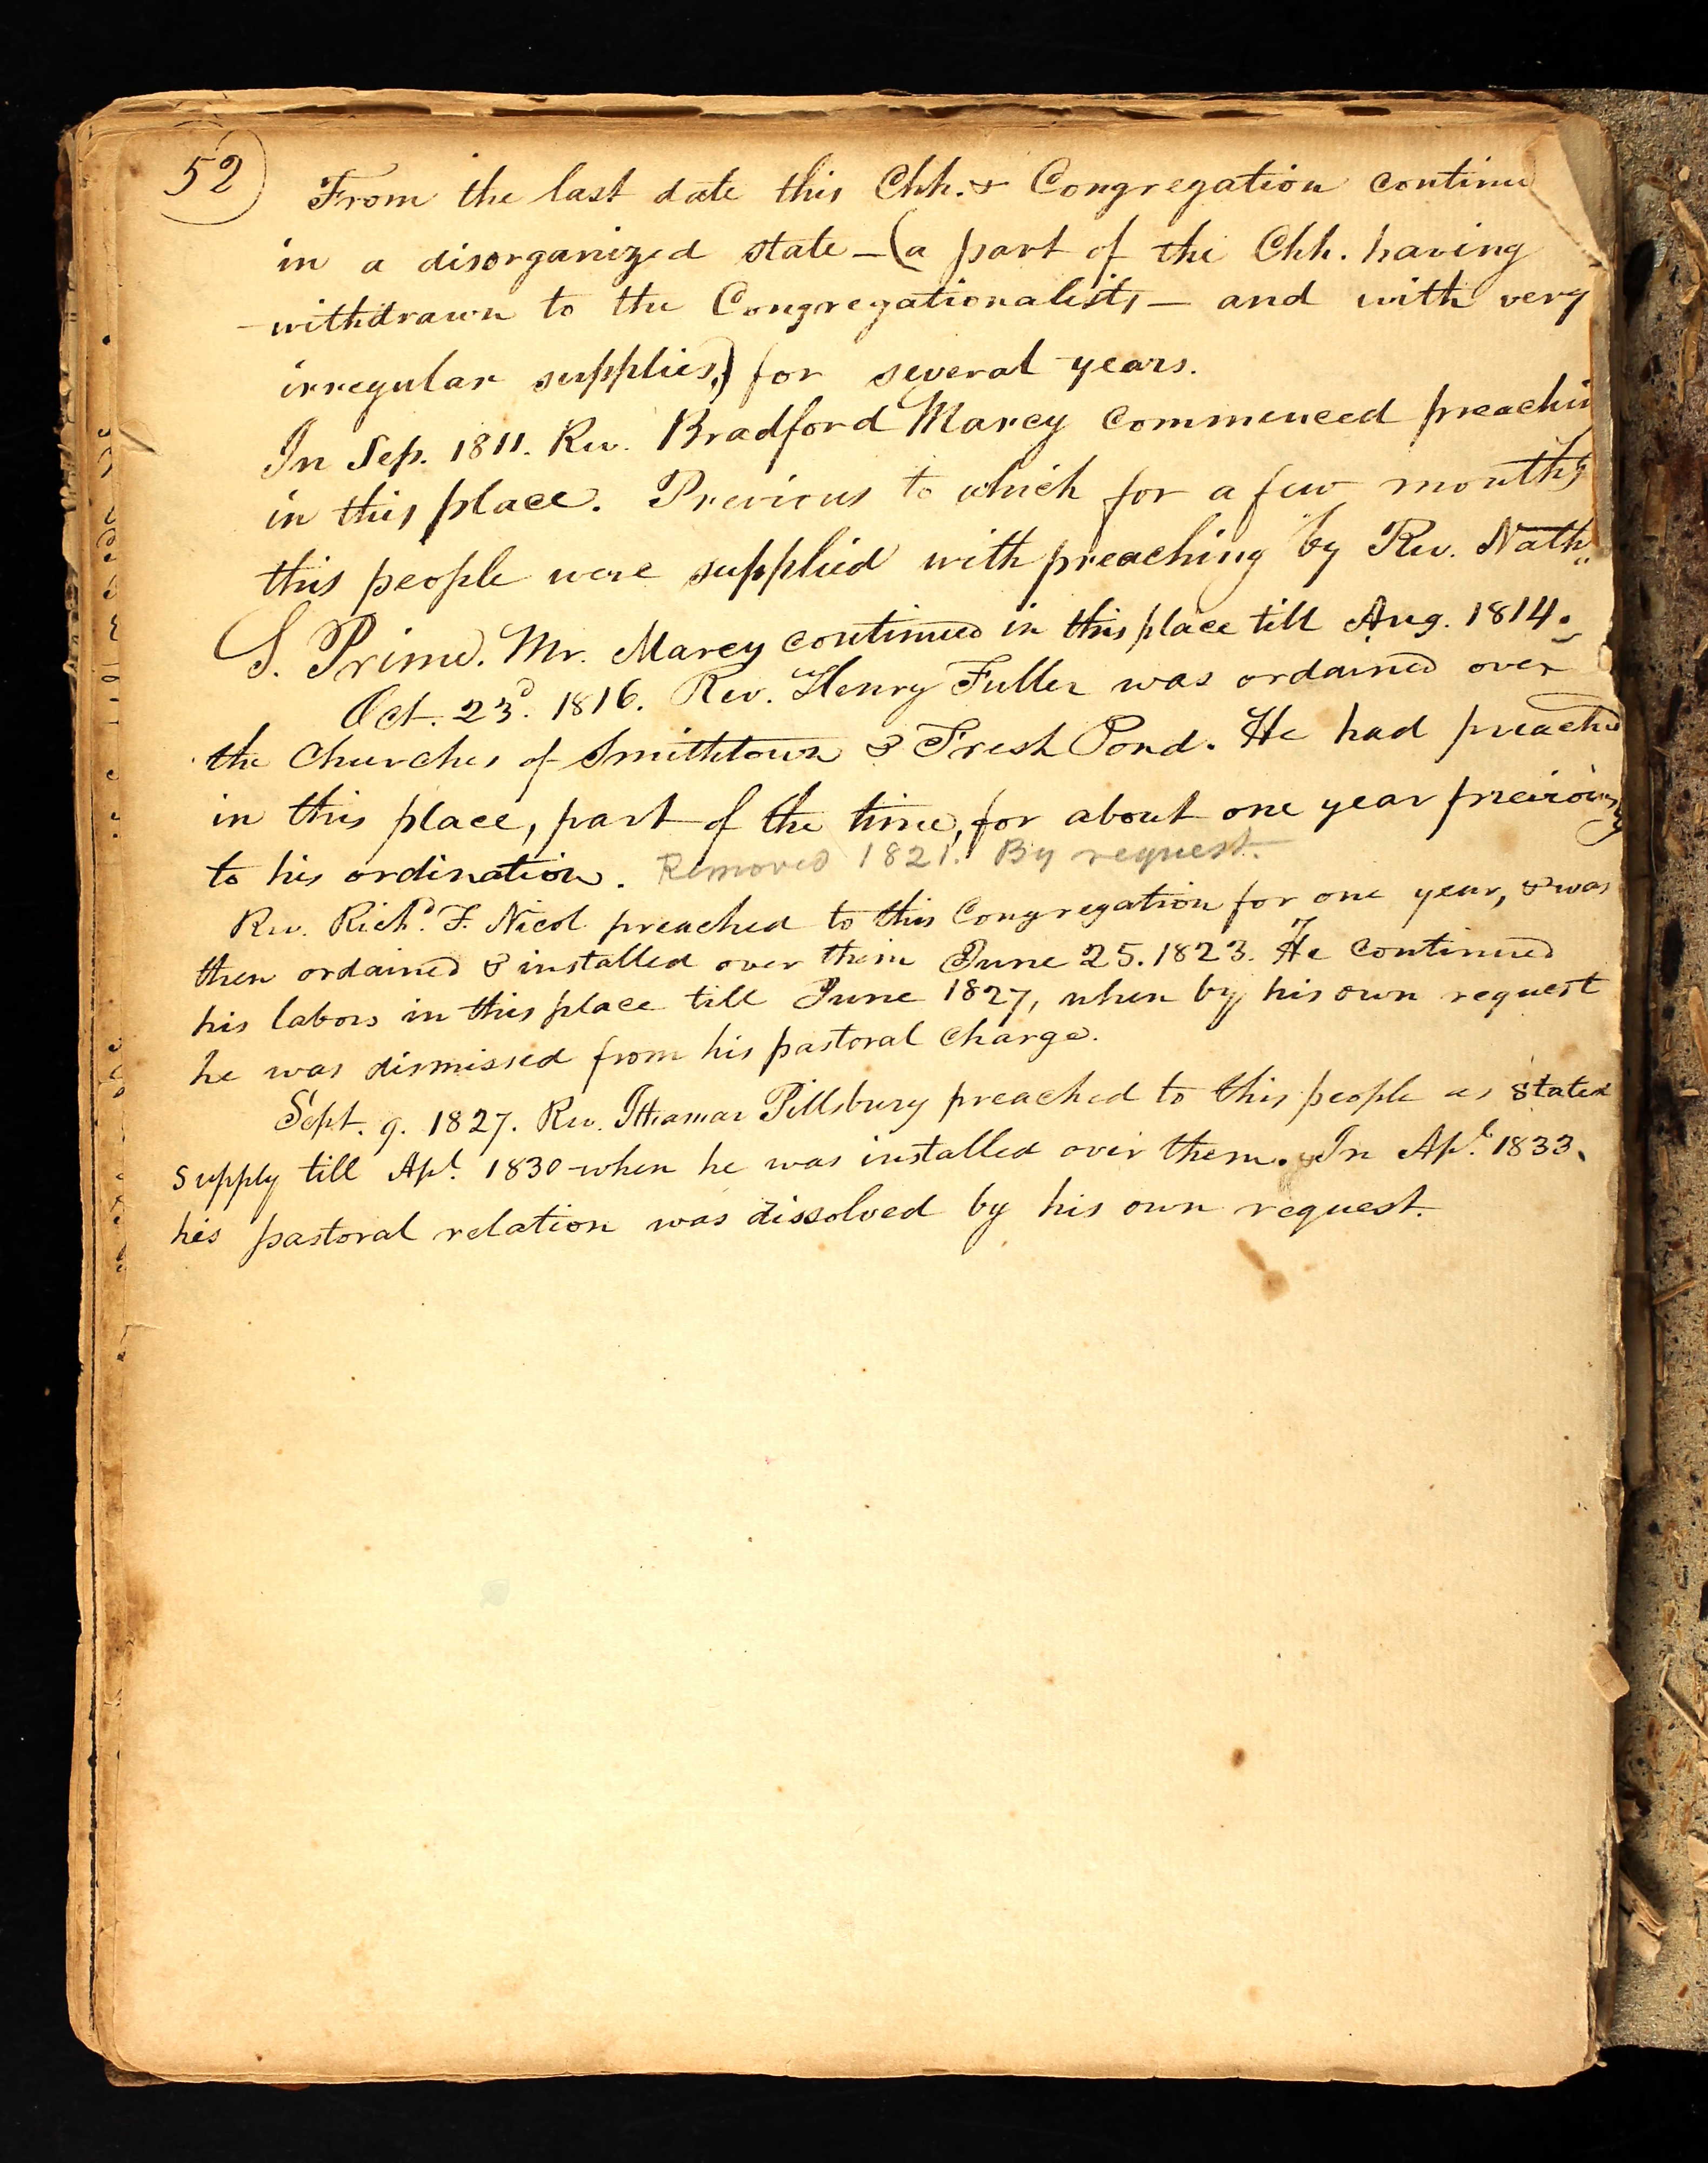 52
From the last date this Chh. & Congregation continu
in a disorganized state — (a part of the Chh. having
withdrawn to the Congregationalists — and with very
irregular supplies,) for several years.
In Sep. 1811. Rev. Bradford Marcy commenced preachin
in this place. Previous to which for a few months
this people were supplied with preaching by Rev. Nath.
S. Prime. Mr. Marcy continued in this place till Aug. 1814.
Oct. 23d. 1816. Rev. Henry Fuller was ordained over
the Churches of Smithtown & Fresh Pond. He had preached
in this place, part of the time, for about one year previously
to his ordination. Removed 1821. By request.
Rev. Richd. F. Nicol preached to this Congregation for one year, & was
then ordained & installed over them June 25. 1823. He continued
his labors in this place till June 1827, when by his own request
he was dismissed from his pastoral charge.
Sept. 9. 1827. Rev. Ithamar Pillsbury preached to this people as stated
supply till Apl. 1830 when he was installed over them. In Apl. 1833.
his pastoral relation was dissolved by his own request.